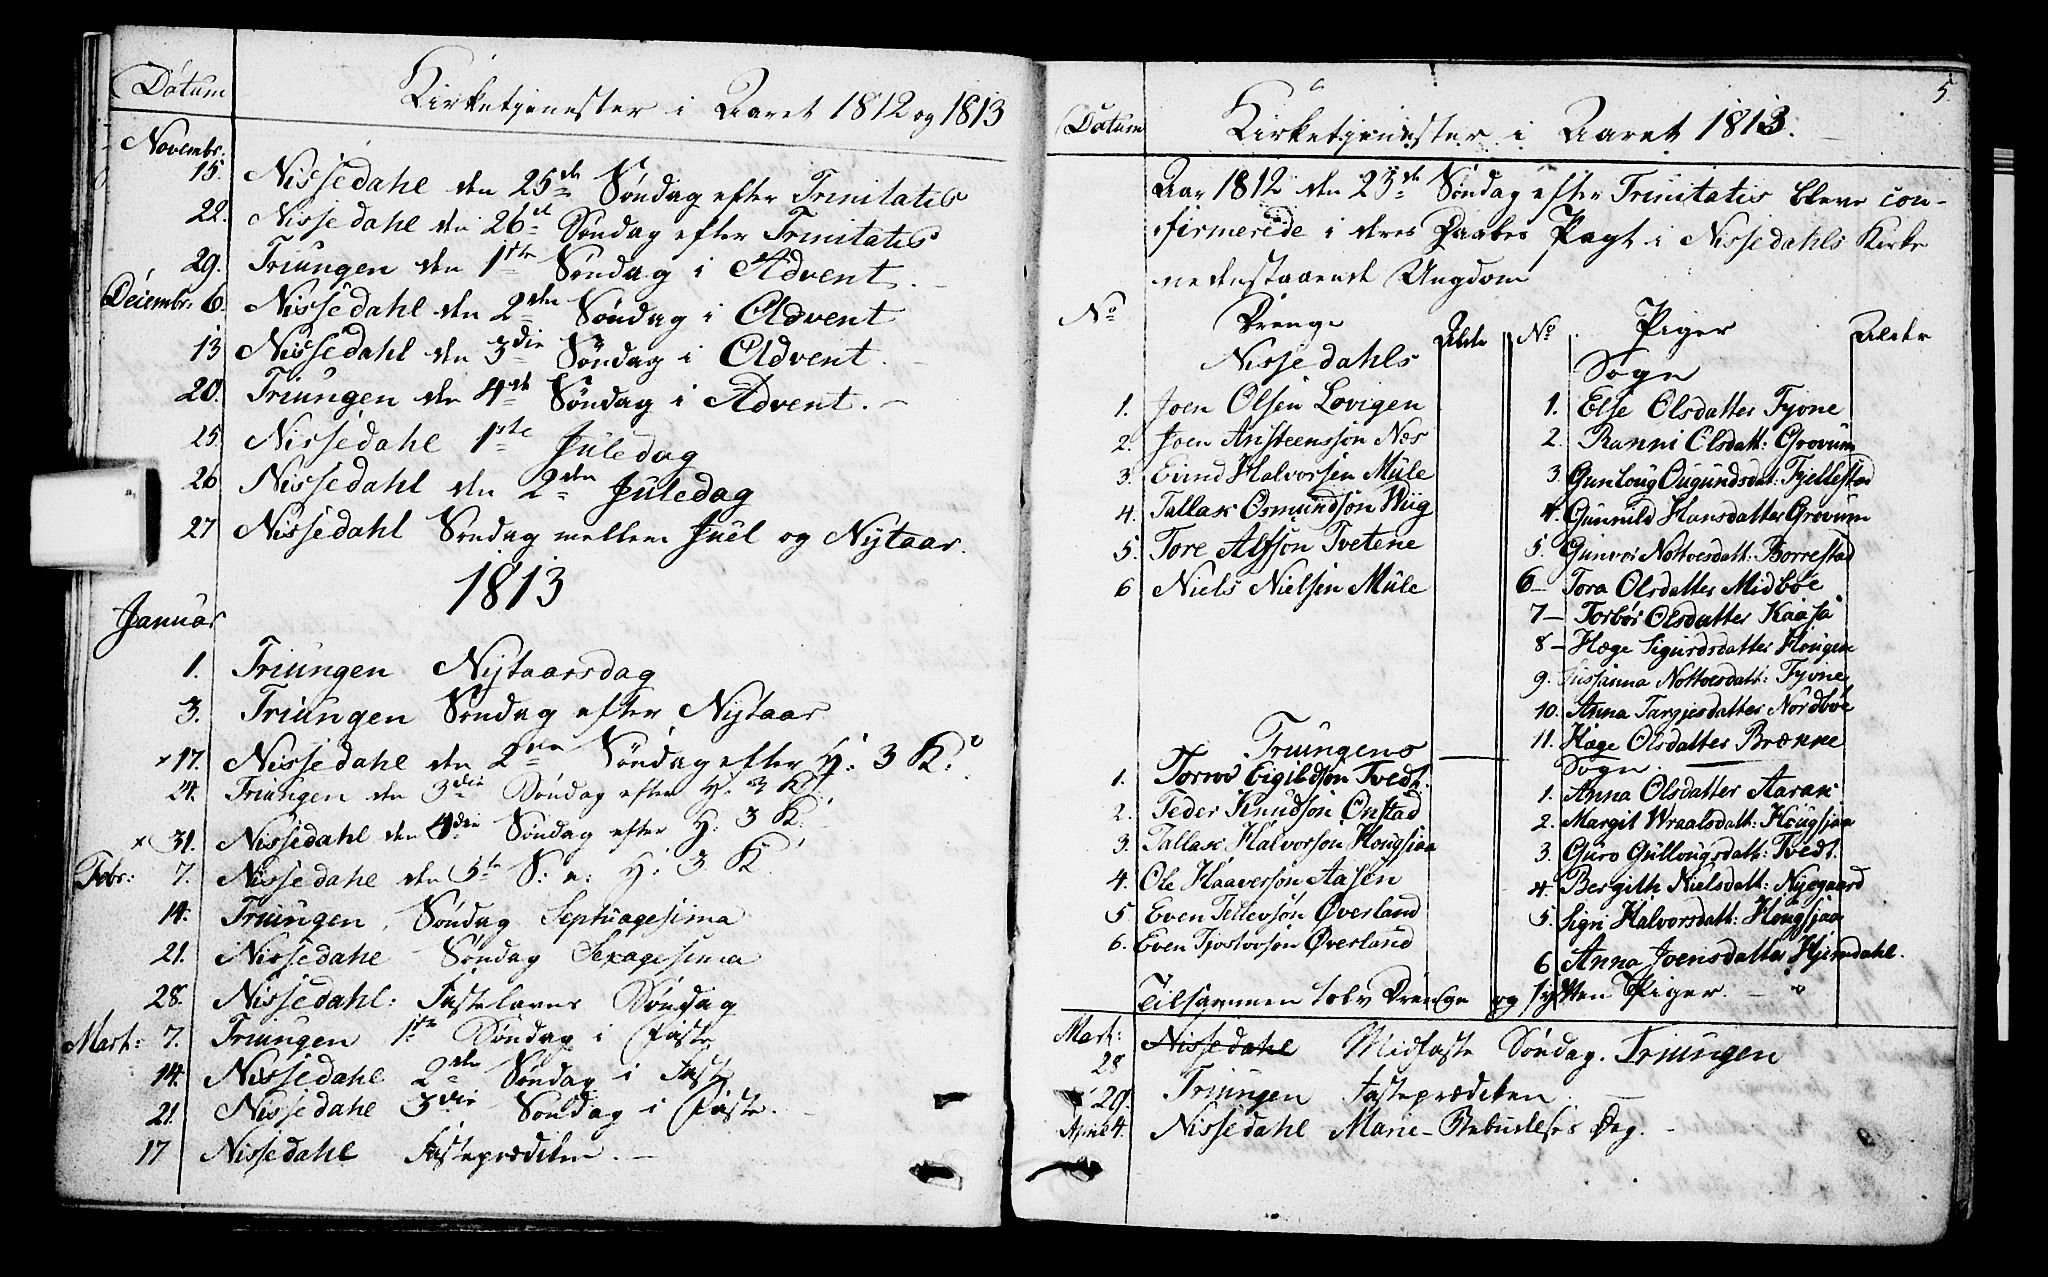 Datum
Kirketjenester i Aaret 1812 og 1813
Novembr:
15. Nissedahl den 25de Søndag efter Trinitatis
22. Nissedahl den 26de Søndag efter Trinitatis
29. Triungen den 1ste Søndag i Advent.
Decembr: 6. Nissedahl den 2den Søndag i Advent
13 Nissedahl den 3die Søndag i Advent
20. Triungen den 4de Søndag i Advent. –
25. Nissedahl 1ste Juledag
26 Nissedahl den 2den Juledag
27 Nissedahl Søndag mellem Juel og Nytaar.
1813
Januar
1. Triungen Nytaarsdag
3. Triungen Søndag efter Nytaar
× 17. Nissedahl den 2den Søndag efter H: 3 K:
24. Triungen den 3die Søndag efter H: 3 K:
× 31. Nissedahl den 4die Søndag efter H: 3 K:
Febr: 7. Nissedahl den 5te S: e: H: 3 K:
14. Triungen, Søndag Septuagesima
21. Nissedahl Søndag Sexagesima
28. Nissedahl: Fastelavns Søndag
Mart: 7. Triungen 1ste Søndag i Faste
14. Nissedahl 2den Søndag i Faste
21. Nissedahl 3die Søndag i Faste. –
17 Nissedahl Fasteprædiken. –
5.
Datum
Kirketjenester i Aaret 1813. –
Aar 1812 den 23de Søndag efter Trinitatis bleve con-
firmerede i deres Daabes Pagt i Nissedahls Kirke
nedenstaaende Ungdom
No Drenge Alder No Piger Alder
Nissedahls Sogn
1. Joen Olsen Lovigen 1. Else Olsdatter Fjone
2. Joen Ansteensson Næs 2. Ranni Olsdatt: Grovum
3. Eivind Halvorsen Mule 3. Gunloug Ougundsdat: Fjellestad
4. Tallak Osmundson Wiig 4. Gunnild Hansdatter Grovum
5. Tore Alfson Tvetene 5. Gunvor Nottovsdatt: Borrestad
6 Niels Nielsen Mule 6 – Tora Olsdatter Midbøe
7 – Torbør Olsdatter Kaasa
8 – Hæge Sigurdsdatter Hougen
9. Susanna Nottovsdatt: Fjone
10. Anna Targjesdatter Nordbøe
11. Hæge Olsdatter Brække
Triungens Sogn.
1. Eigildson Tvedt. 1. Anna Olsdatter Aarak
2. Peder Knudson Onstad 2. Margit Wraalsdatt: Hougsjaa
3. Tallak Halvorson Hougsjaa 3. Guro Gullougsdatt: Tvedt.
4. Ole Haaverson Aasen 4. Bergith Nielsdatt: Nyegaard
5 Even Tellevson Øverland 5. Sigri Halvorsdatt: Hougsjaa
6. Even Tjostovson Øverland 6 Anna Joensdatter Hjemdahl.
Tilsammen tolv Drenge og sytten Piger. –
Mart:
28 Nissedahl Midfaste Søndag. Triungen
29. Triungen Fasteprædiken. –
April 4. Nissedahl Mariæ Bebudelses Dag. –